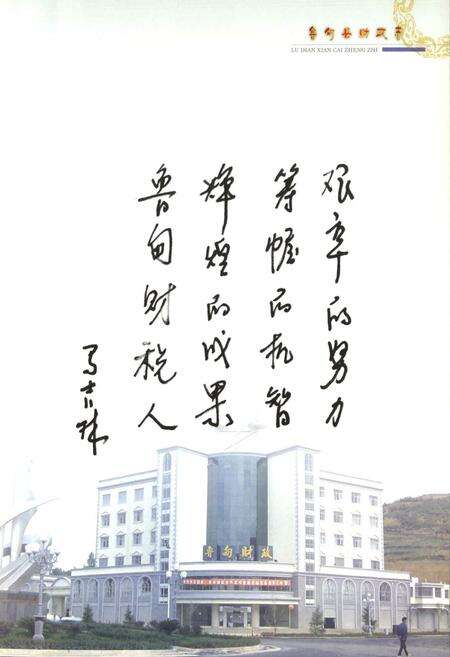 鲁甸县财政志
LU DIAN XIAN CAI ZHENG ZHI
艰辛的努力
筹幄的机智
辉煌的成果
鲁甸财税人
鲁甸财政